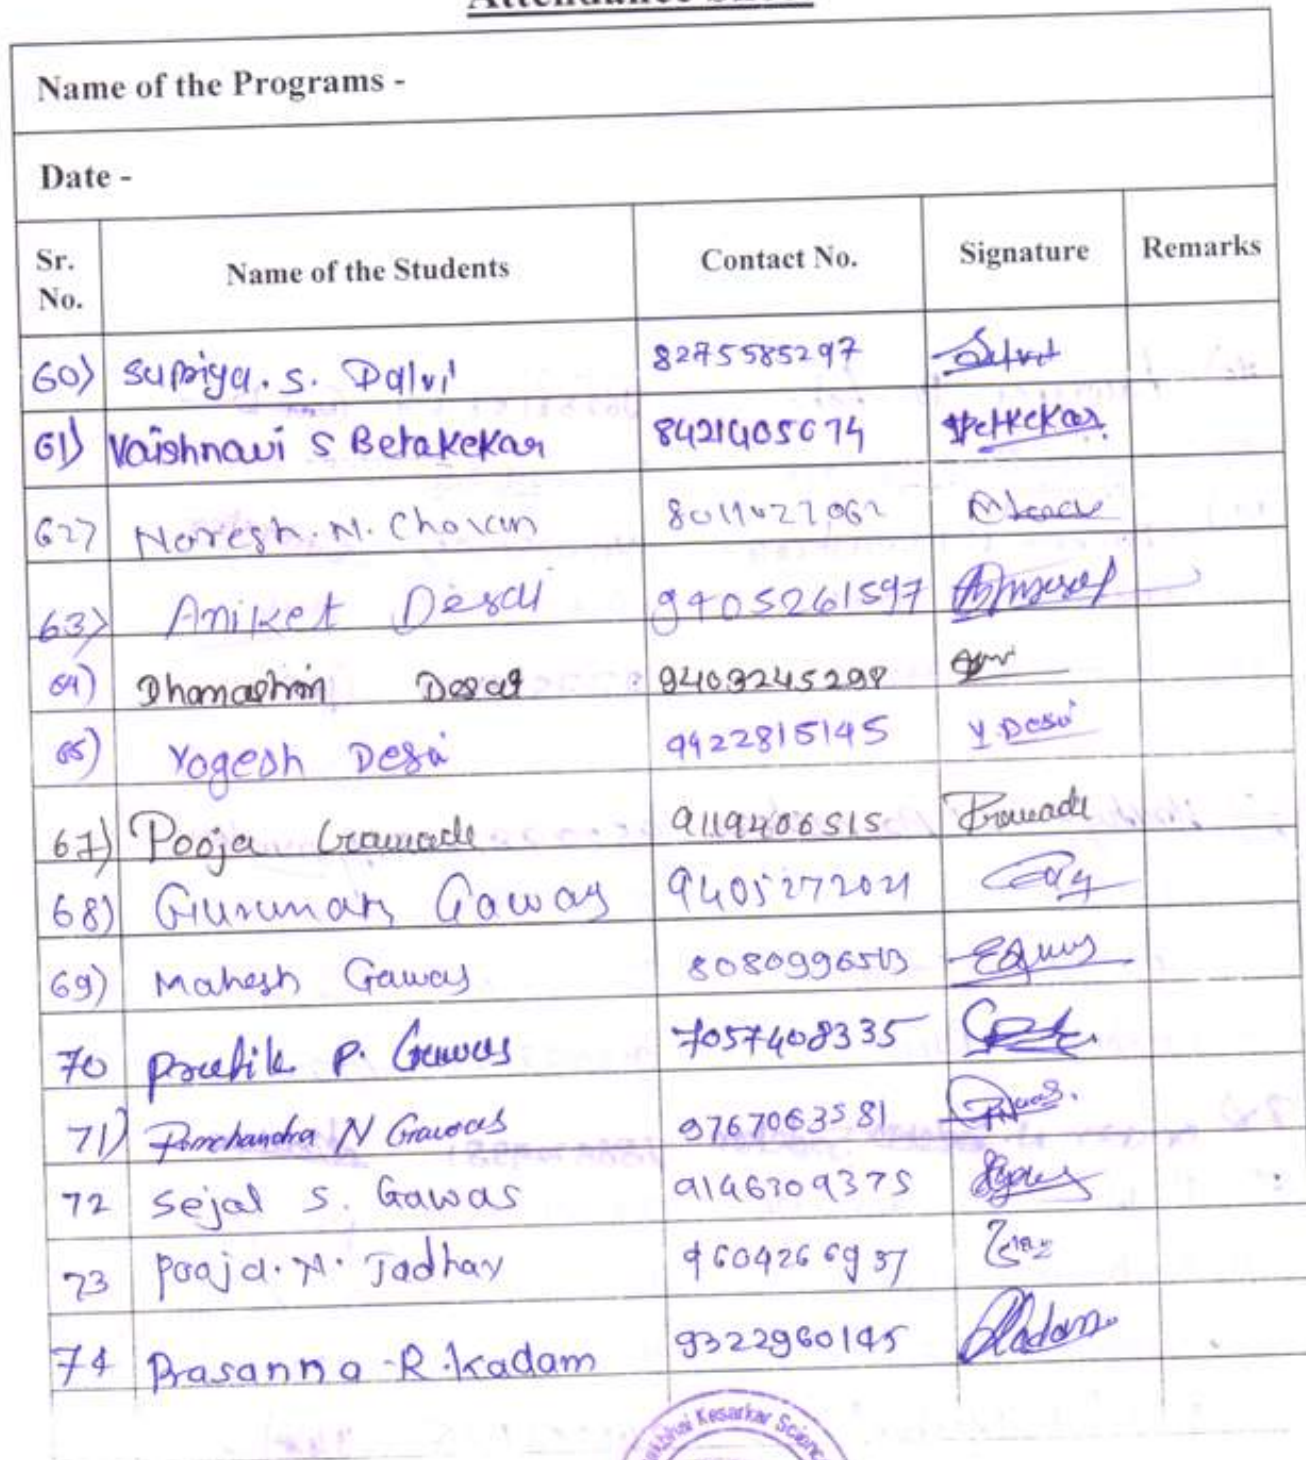 Attendance Sheet
Name of the Programs -
Date -
Sr. No. Name of the Students Contact No. Signature Remarks
60) Supriya. S. Dalvi 8275585297 Dalvi
61) Vaishnavi S Betakekar 8421405674 Betkekar
62) Naresh. N. Chavan
63) Aniket Desai 9405261597
64) Dhanashri Desai 9403245298
65) Yogesh Desai 9422815145 Y. Desai
67) Pooja Gawade 9119406515 Gawade
68) Gurunath Gawas 9405272021
69) Mahesh Gawas
70 Pratik P. Gawas 7057408335
71) Ramchandra N Gawas 9767063581
72 Sejal S. Gawas 9146309375
73 Pooja. N. Jadhav
74 Prasanna R. Kadam 9322960145 Kadam
Kesarkar Scienc